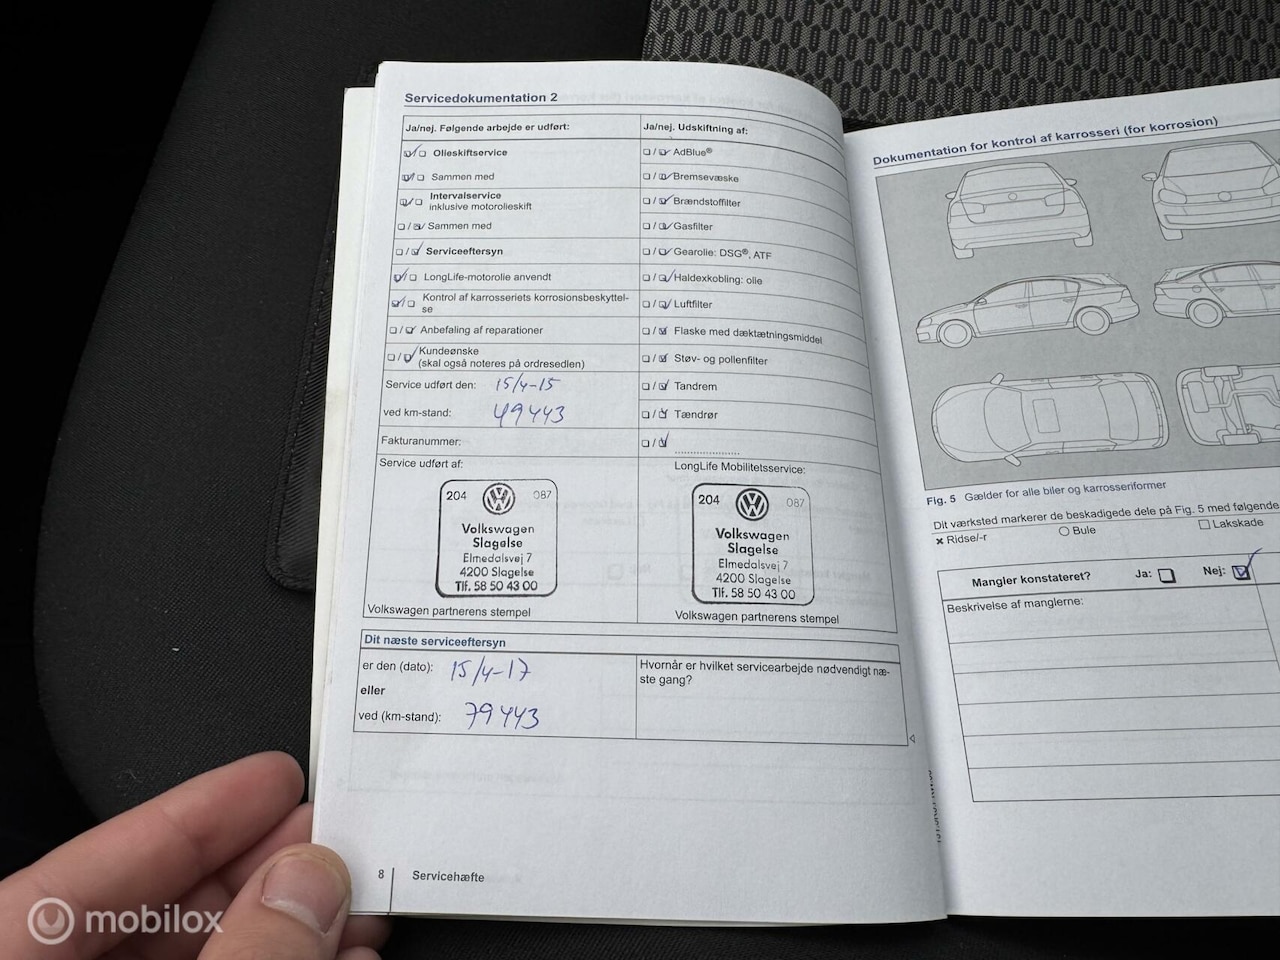 Servicedokumentation 2
Ja/nej. Følgende arbejde er udført:
Olieskiftservice
Sammen med
Intervalservice
inklusive motorolieskift
Sammen med
Serviceeftersyn
LongLife-motorolie anvendt
Kontrol af karrosseriets korrosionsbeskyttel-
se
Anbefaling af reparationer
Kundeønske
(skal også noteres på ordresedlen)
Service udført den: 15/4-15
ved km-stand: 49443
Fakturanummer:
Ja/nej. Udskiftning af:
AdBlue®
Bremsevæske
Brændstoffilter
Gasfilter
Gearolie: DSG®, ATF
Haldexkobling: olie
Luftfilter
Flaske med dæktætningsmiddel
Støv- og pollenfilter
Tandrem
Tændrør
Service udført af:
204 087
Volkswagen
Slagelse
Elmedalsvej 7
4200 Slagelse
Tlf. 58 50 43 00
Volkswagen partnerens stempel
LongLife Mobilitetsservice:
204 087
Volkswagen
Slagelse
Elmedalsvej 7
4200 Slagelse
Tlf. 58 50 43 00
Volkswagen partnerens stempel
Dit næste serviceeftersyn
er den (dato): 15/4-17
eller
ved (km-stand): 79443
Hvornår er hvilket servicearbejde nødvendigt næ-
ste gang?
8 Servicehæfte
Dokumentation for kontrol af karrosseri (for korrosion)
Fig. 5 Gælder for alle biler og karrosseriformer
Dit værksted markerer de beskadigede dele på Fig. 5 med følgende
× Ridse/-r
Bule
Lakskade
Mangler konstateret? Ja: Nej:
Beskrivelse af manglerne:
mobilox